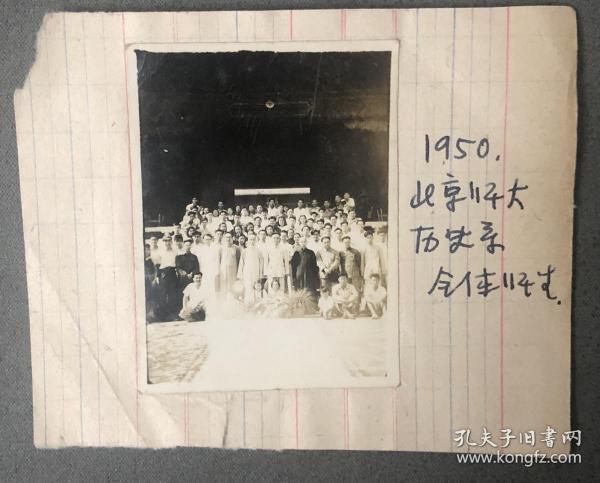 1950.
北京师大
历史系
全体师生.
孔夫子旧書网
www.kongfz.com